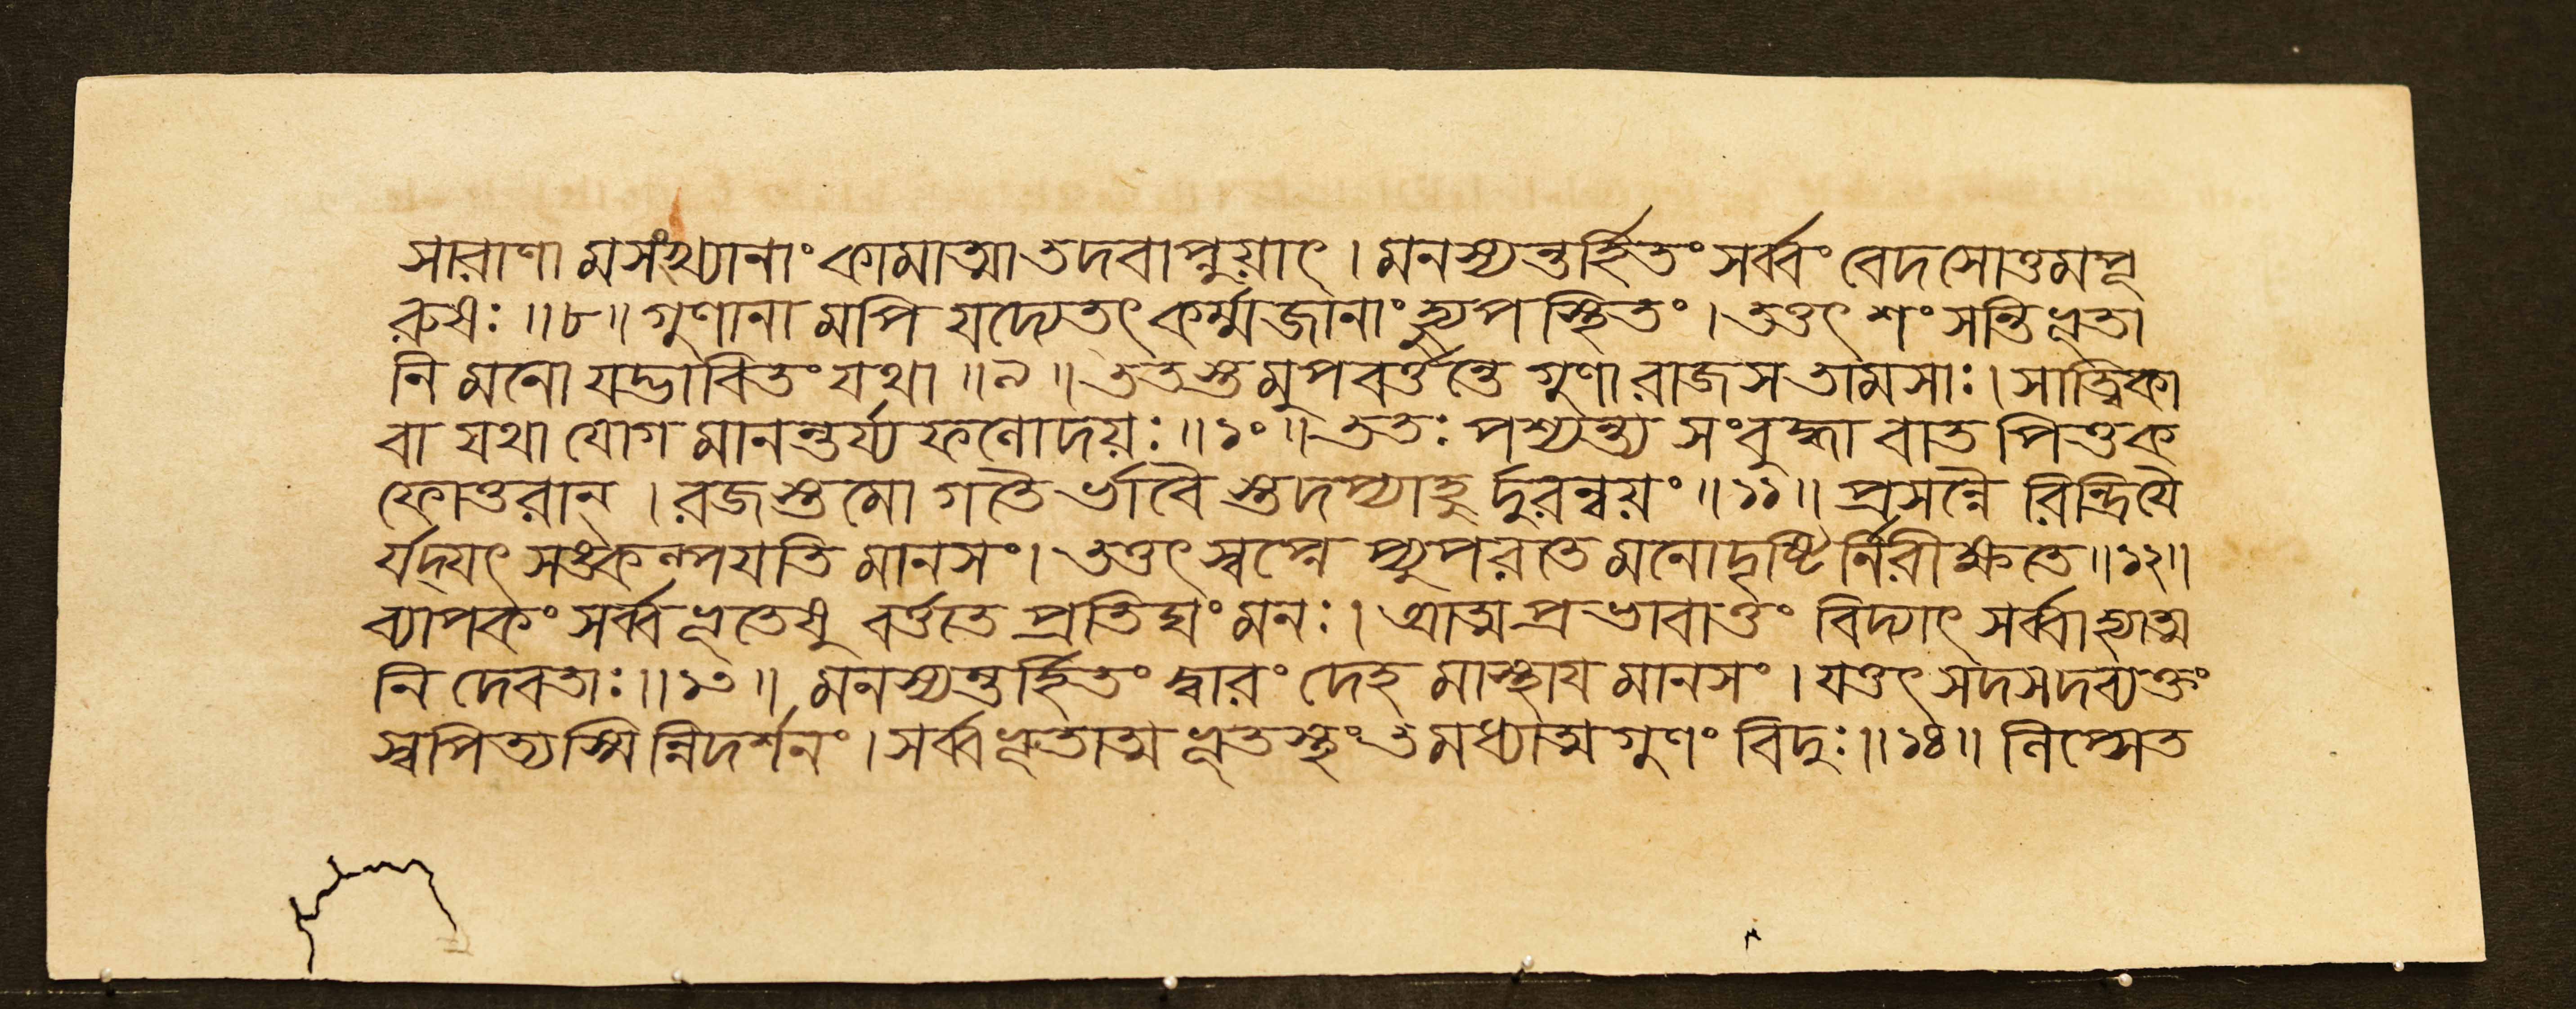 সারাণা মসংখ্যানাং কামাত্মা তদবাপ্নুয়াৎ । মনস্যন্তর্হিতং সর্ব্বং বেদসোত্তমপূ
রুষঃ ॥৮॥ গুণানা মপি যদ্যেতৎ কর্ম্মজানাং হ্যুপ স্থিতং । তত্তৎ শং সন্তি ভূতা
নি মনো যদ্ভাবিতং যথা ॥৯॥ ততস্তমুপবর্ত্তন্তে গুণা রাজস তামসাঃ । সাত্ত্বিকা
বা যথা যোগ মানন্তর্য্য ফলোদয়ঃ ॥১০॥ ততঃ পশ্যন্ত্য সংবুদ্ধ্যা বাত পিত্তক
ফোত্তরান্ । রজস্তমো গতৈ র্ভাবৈ স্তদপ্যাহু র্দুরন্বয়ং ॥১১॥ প্রসন্নৈ রিন্দ্রিয়ৈ
র্যদ্যৎ সঙ্কল্পযতি মানসং । তত্তৎ স্বপ্নে প্যুপরতে মনোদৃষ্টি র্নিরীক্ষতে ॥১২॥
ব্যাপকং সর্ব্ব ভূতেষু বর্ত্ততে প্রতিঘং মনঃ । আত্মপ্রভাবাত্তং বিদ্যাৎ সর্ব্বাহ্যাত্ম
নি দেবতাঃ ॥১৩॥ মনস্যন্তর্হিতং দ্বারং দেহ মাস্থায মানসং । যত্তৎ সদসদব্যক্তং
স্বপিত্যস্মি ন্নিদর্শনং । সর্ব্বভূতাত্ম ভূতস্থং তমধ্যাত্মগুণং বিদুঃ ॥১৪॥ লিপ্সেত